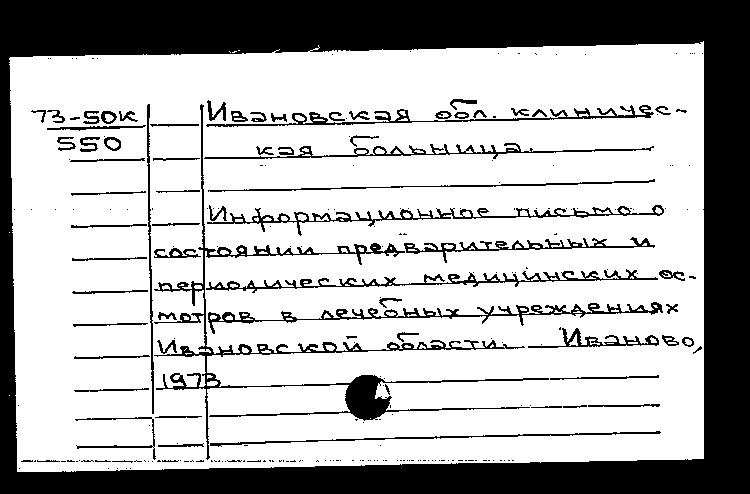 73-50к
550
Ивановская обл. клиничес-
кая больница.
Информационное письмо о
состоянии предварительных и
периодических медицинских ос-
мотров в лечебных учреждениях
Ивановской области. Иваново,
1973